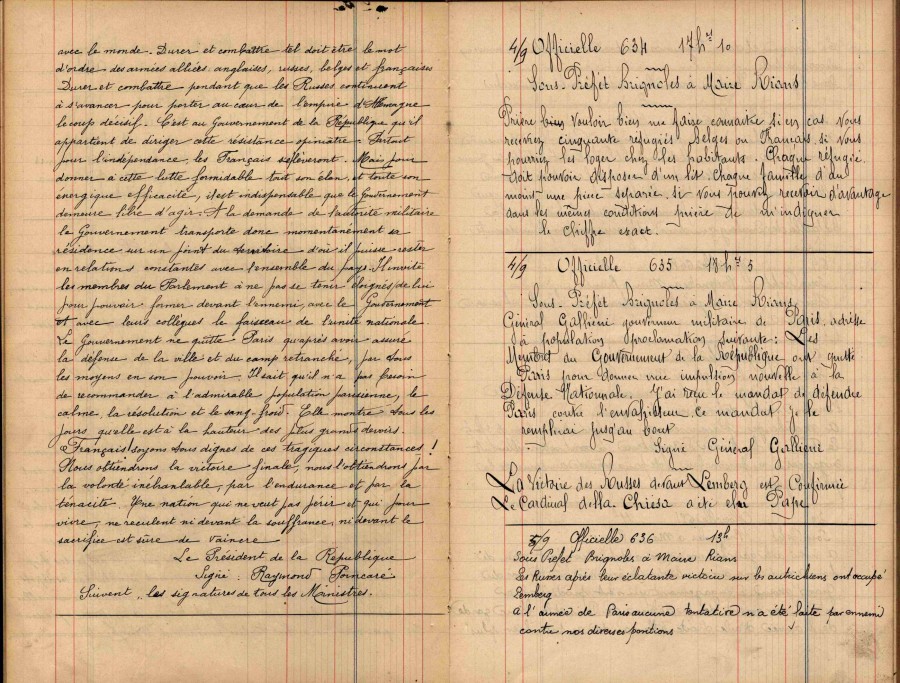 avec le monde. Durer et combattre tel doit être le mot
d'ordre des armées alliées, anglaises, russes, belges et françaises
Durer et combattre pendant que les Russes continuent
à s'avancer pour porter au cœur de l'empire d'Allemagne
le coup décisif. C'est au Gouvernement de la République qu'il
appartient de diriger cette résistance opiniatre. Partout
pour l'indépendance, les Français se lèveront. Mais pour
donner à cette lutte formidable tout son élan, et toute son
énergique efficacité, il est indispensable que le Gouvernement
demeure libre d'agir. A la demande de l'autorité militaire
le Gouvernement transporte donc momentanément sa
résidence sur un point du territoire d'où il puisse rester
en relations constantes avec l'ensemble du pays. Il invite
les membres du Parlement à ne pas se tenir éloignés de lui
pour pouvoir former devant l'ennemi, avec le Gouvernement
et avec leurs collègues le faisceau de l'unité nationale.
Le Gouvernement ne quitte Paris qu'après avoir assuré
la défense de la ville et du camp retranché, par tous
les moyens en son pouvoir. Il sait qu'il n'a pas besoin
de recommander à l'admirable population parisienne, le
calme, la résolution et le sang-froid. Elle montre tous les
jours qu'elle est à la hauteur des plus grands devoirs.
Français! soyons tous dignes de ces tragiques circonstances!
Nous obtiendrons la victoire finale, nous l'obtiendrons par
la volonté inébranlable, par l'endurance et par la
ténacité. Une nation qui ne veut pas périr et qui pour
vivre, ne reculent ni devant la souffrance, ni devant le
sacrifice est sûre de vaincre
Le Président de la République
Signé: Raymond Poincaré
Suivent les signatures de tous les Ministres.
4/9 Officielle 634 17hrs 10
Sous-Préfet Brignoles à Maire Rians
Prière bien vouloir bien me faire connaitre si en cas vous
recevriez cinquante réfugiés Belges ou Français si vous
pourriez les loger chez les habitants. Chaque réfugié
doit pouvoir disposer d'un lit. Chaque famille d'au
moins une pièce séparée. Si vous pouvez recevoir davantage
dans les mêmes conditions prière de m'indiquer
le chiffre exact.
4/9 Officielle 635 18hrs 5
Sous-Préfet Brignoles à Maire Rians
Général Galliéni gouverneur militaire de Paris adresse
à population proclamation suivante: Les
Membres du Gouvernement de la République ont quitté
Paris pour donner une impulsion nouvelle à la
Défense Nationale. J'ai reçu le mandat de défendre
Paris contre l'envahisseur ce mandat je le
remplirai jusqu'au bout
Signé Général Galliéni
La Victoire des Russes devant Lemberg est Confirmée
Le Cardinal della Chiesa a été élu Pape
5/9 Officielle 636 13h
Sous Préfet Brignoles à Maire Rians
Les Russes après leur éclatante victoire sur les autrichiens ont occupé
Lemberg
à l'armée de Paris aucune tentative n'a été faite par ennemi
contre nos diverses positions